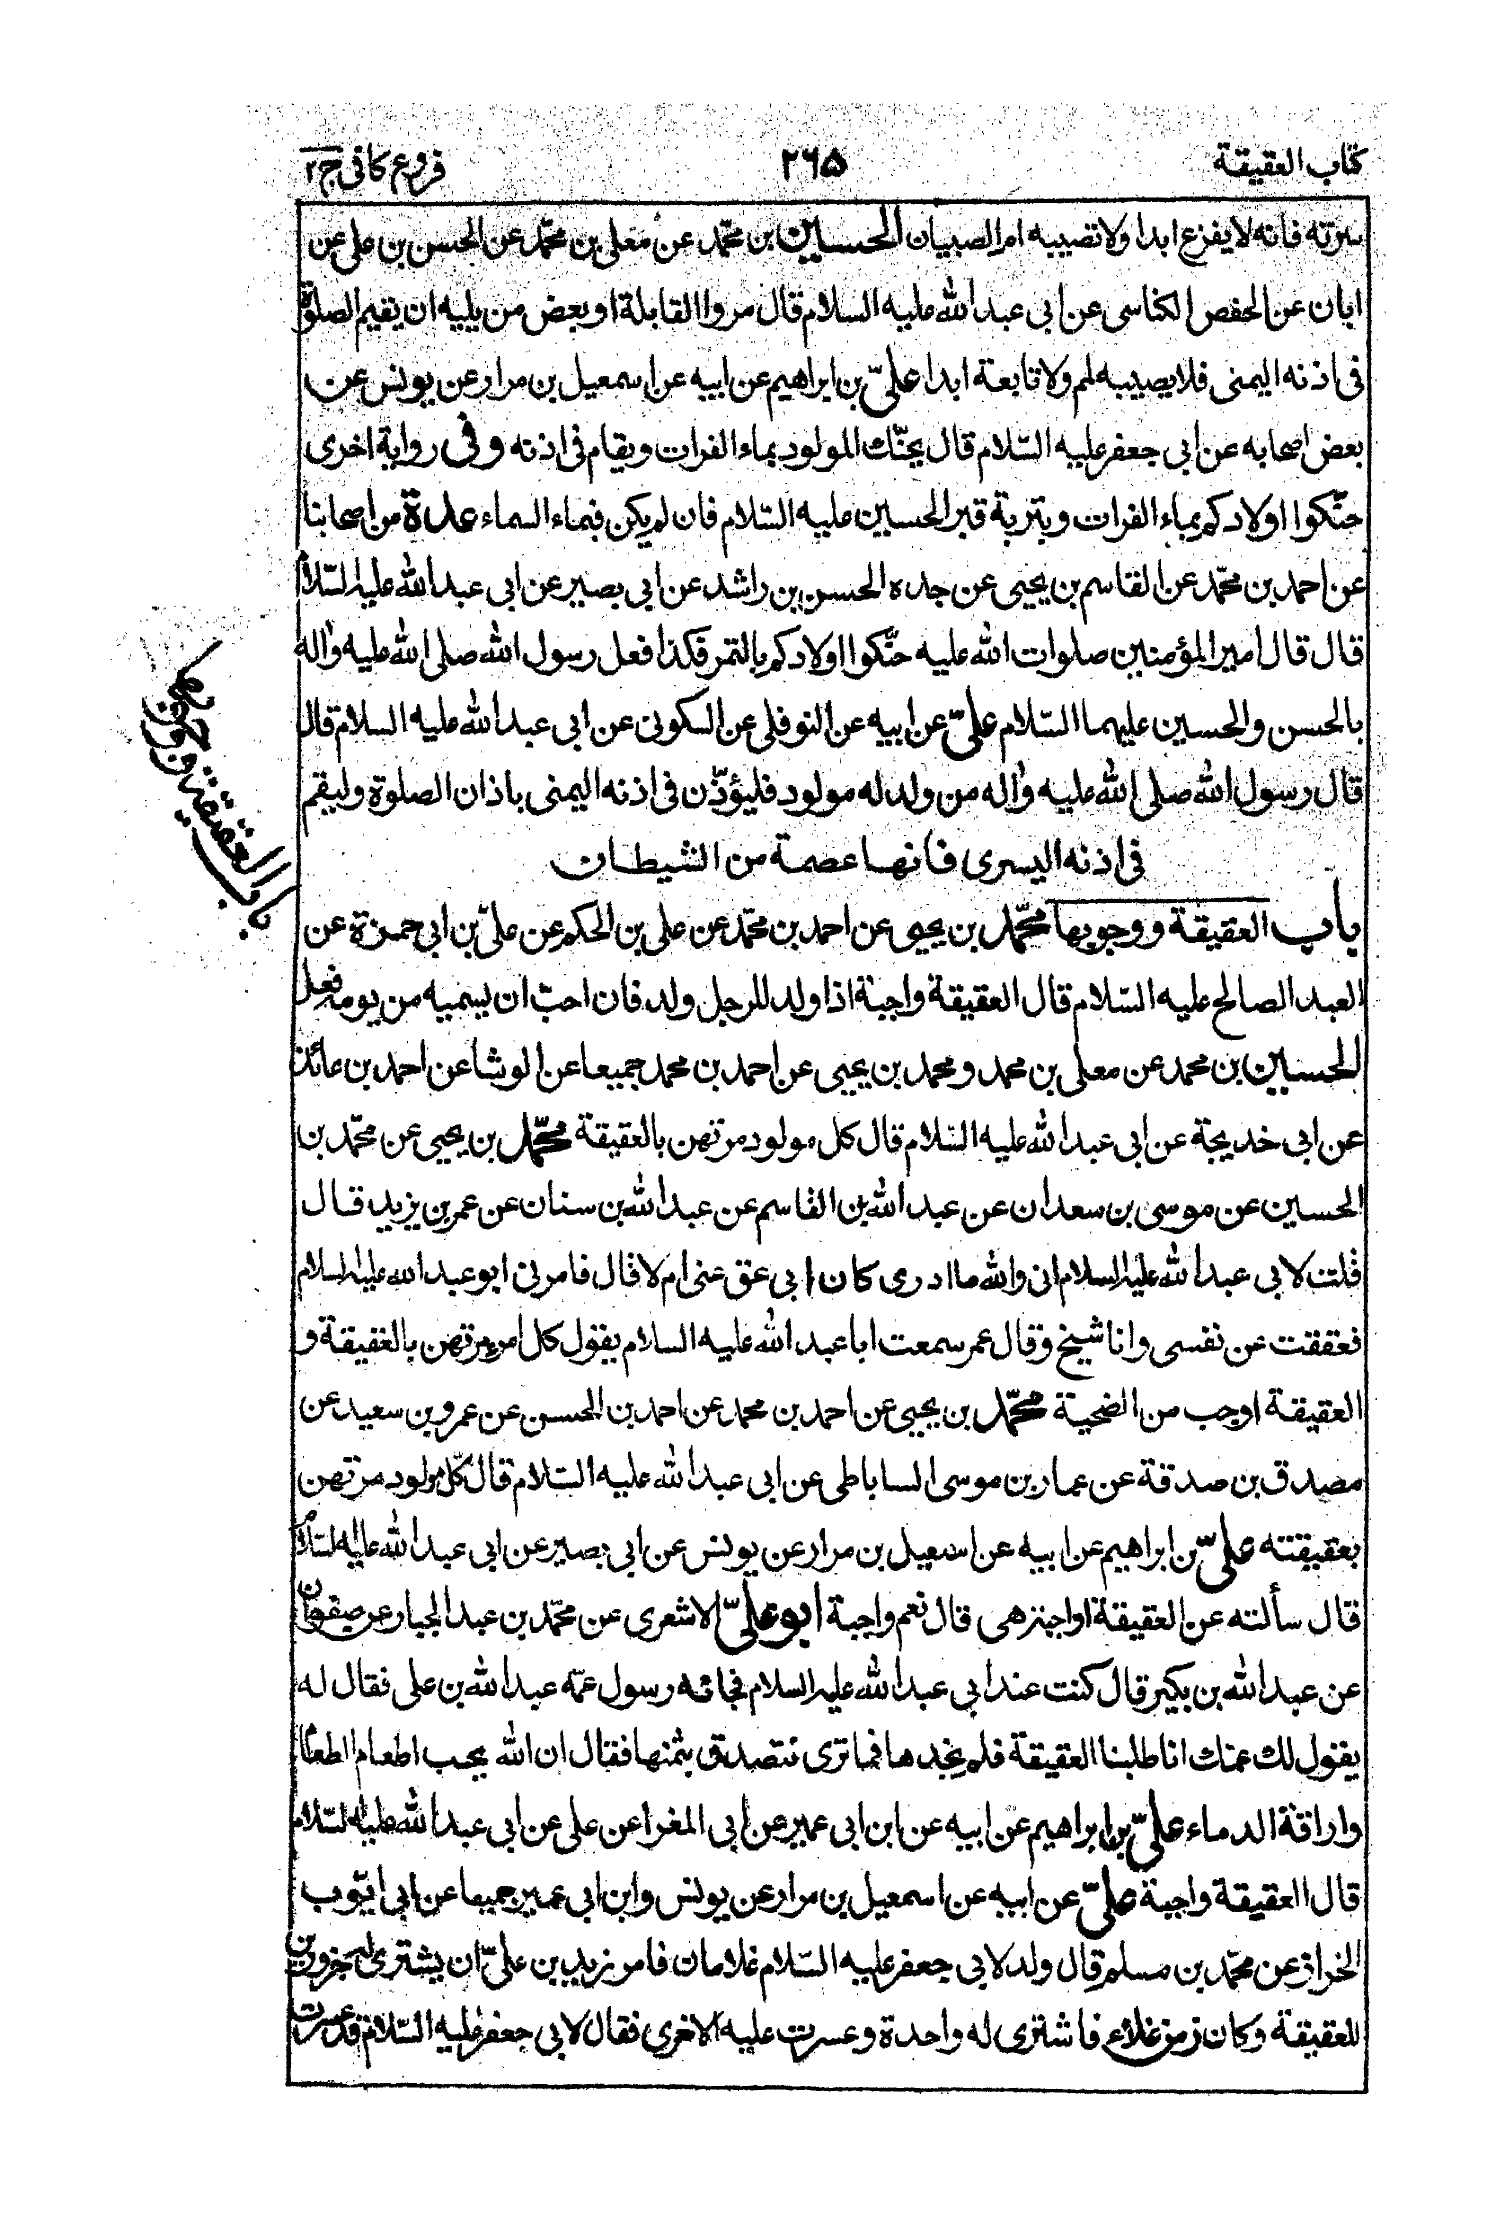 كتاب العقيقة
٢٦٥
فروع كافى ج٢
سرته فانه لا يفزع ابدا ولا تصيبه ام الصبيان الحسين بن محمّد عن معلى بن محمّد عن الحسن بن على عن
ابان عن الحفص الكناسى عن ابى عبد الله عليه السلام قال مروا القابلة او بعض من يليه ان يقيم الصلوة
فى اذنه اليمنى فلا يصيبه لمم ولا تابعة ابدا علىّ بن ابراهيم عن ابيه عن اسمعيل بن مرار عن يونس عن
بعض اصحابه عن ابى جعفر عليه السّلام قال يحنّك المولود بماء الفرات ويقام فى اذنه وفى رواية اخرى
حنّكوا اولادكم بماء الفرات وبتربة قبر الحسين عليه السّلام فان لم يكن فبماء السماء عدة من اصحابنا
عن احمد بن محمّد عن القاسم بن يحيى عن جده الحسن بن راشد عن ابى بصير عن ابى عبد الله عليه السّلام
قال قال امير المؤمنين صلوات الله عليه حنّكوا اولادكم بالتمر فكذا فعل رسول الله صلى الله عليه واله
بالحسن والحسين عليهما السّلام علىّ عن ابيه عن النوفلى عن السكونى عن ابى عبد الله عليه السلام قال
قال رسول الله صلى الله عليه واله من ولد له مولود فليؤذّن فى اذنه اليمنى باذان الصلوة وليقم
فى اذنه اليسرى فانها عصمة من الشيطان
باب العقيقة ووجوبها محمّد بن يحيى عن احمد بن محمّد عن على بن الحكم عن علىّ بن ابى حمزة عن
العبد الصالح عليه السّلام قال العقيقة واجبة اذا ولد للرجل ولد فان احبّ ان يسميه من يومه فعل
الحسين بن محمد عن معلى بن محمد ومحمد بن يحيى عن احمد بن محمد جميعا عن الوشا عن احمد بن عائذ
عن ابى خديجة عن ابى عبد الله عليه السّلام قال كل مولود مرتهن بالعقيقة محمّد بن يحيى عن محمّد بن
الحسين عن موسى بن سعدان عن عبد الله بن القاسم عن عبد الله بن سنان عن عمر بن يزيد قال
قلت لابى عبد الله عليه السلام انى والله ما ادرى كان ابى عق عنى ام لا قال فامرنى ابو عبد الله عليه السلام
فعققت عن نفسى وانا شيخ وقال عمر سمعت ابا عبد الله عليه السلام يقول كل امرء مرتهن بالعقيقة و
العقيقة اوجب من الضحية محمّد بن يحيى عن احمد بن محمد عن احمد بن الحسن عن عمرو بن سعيد عن
مصدق بن صدقة عن عمار بن موسى الساباطى عن ابى عبد الله عليه السّلام قال كلّ مولود مرتهن
بعقيقته علىّ بن ابراهيم عن ابيه عن اسمعيل بن مرار عن يونس عن ابى بصير عن ابى عبد الله عليه السّلام
قال سألته عن العقيقة اواجبة هى قال نعم واجبة ابو علىّ الاشعرى عن محمّد بن عبد الجبار عن صفوان
عن عبد الله بن بكير قال كنت عند ابى عبد الله عليه السلام فجائه رسول عمّه عبد الله بن على فقال له
يقول لك عمّك انا طلبنا العقيقة فلم نجدها فما ترى نتصدق بثمنها فقال ان الله يحب اطعام الطعام
واراقة الدماء علىّ بن ابراهيم عن ابيه عن ابن ابى عمير عن ابى المغرا عن على عن ابى عبد الله عليه السّلام
قال العقيقة واجبة علىّ عن ابيه عن اسمعيل بن مرار عن يونس وابن ابى عمير جميعا عن ابى ايّوب
الخراز عن محمّد بن مسلم قال ولد لابى جعفر عليه السّلام غلامان فامر زيد بن علىّ ان يشترى له جزورين
للعقيقة وكان زمن غلاء فاشترى له واحدة وعسرت عليه الاخرى فقال لابى جعفر عليه السّلام قد عسرت
باب العقيقة ووجوبها